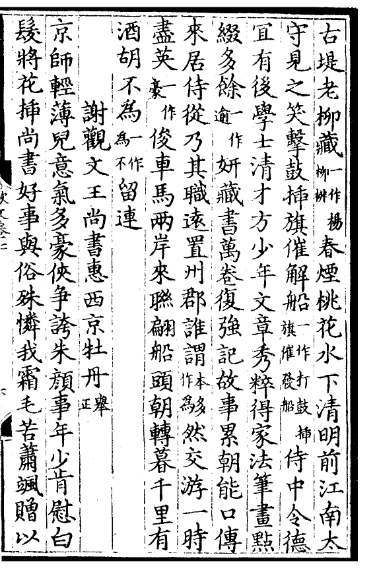 古堤老柳藏一作楊柳緋春煙桃花水下清明前江南太
守見之笑擊鼓插旗催解船一作打鼓插旗催發船侍中令德
宜有後學士清才方少年文章秀粹得家法筆畫點
綴多餘一作逾妍藏書萬卷復強記故事累朝能口傳
來居侍從乃其職遠置州郡誰謂本多作為然交游一時
盡英一作豪俊車馬兩岸來聯翩船頭朝轉暮千里有
酒胡不為一作為不留連
謝觀文王尚書惠西京牡丹舉正
京師輕薄兒意氣多豪俠爭誇朱顏事年少肯慰白
髮將花插尚書好事與俗殊憐我霜毛苦蕭颯贈以